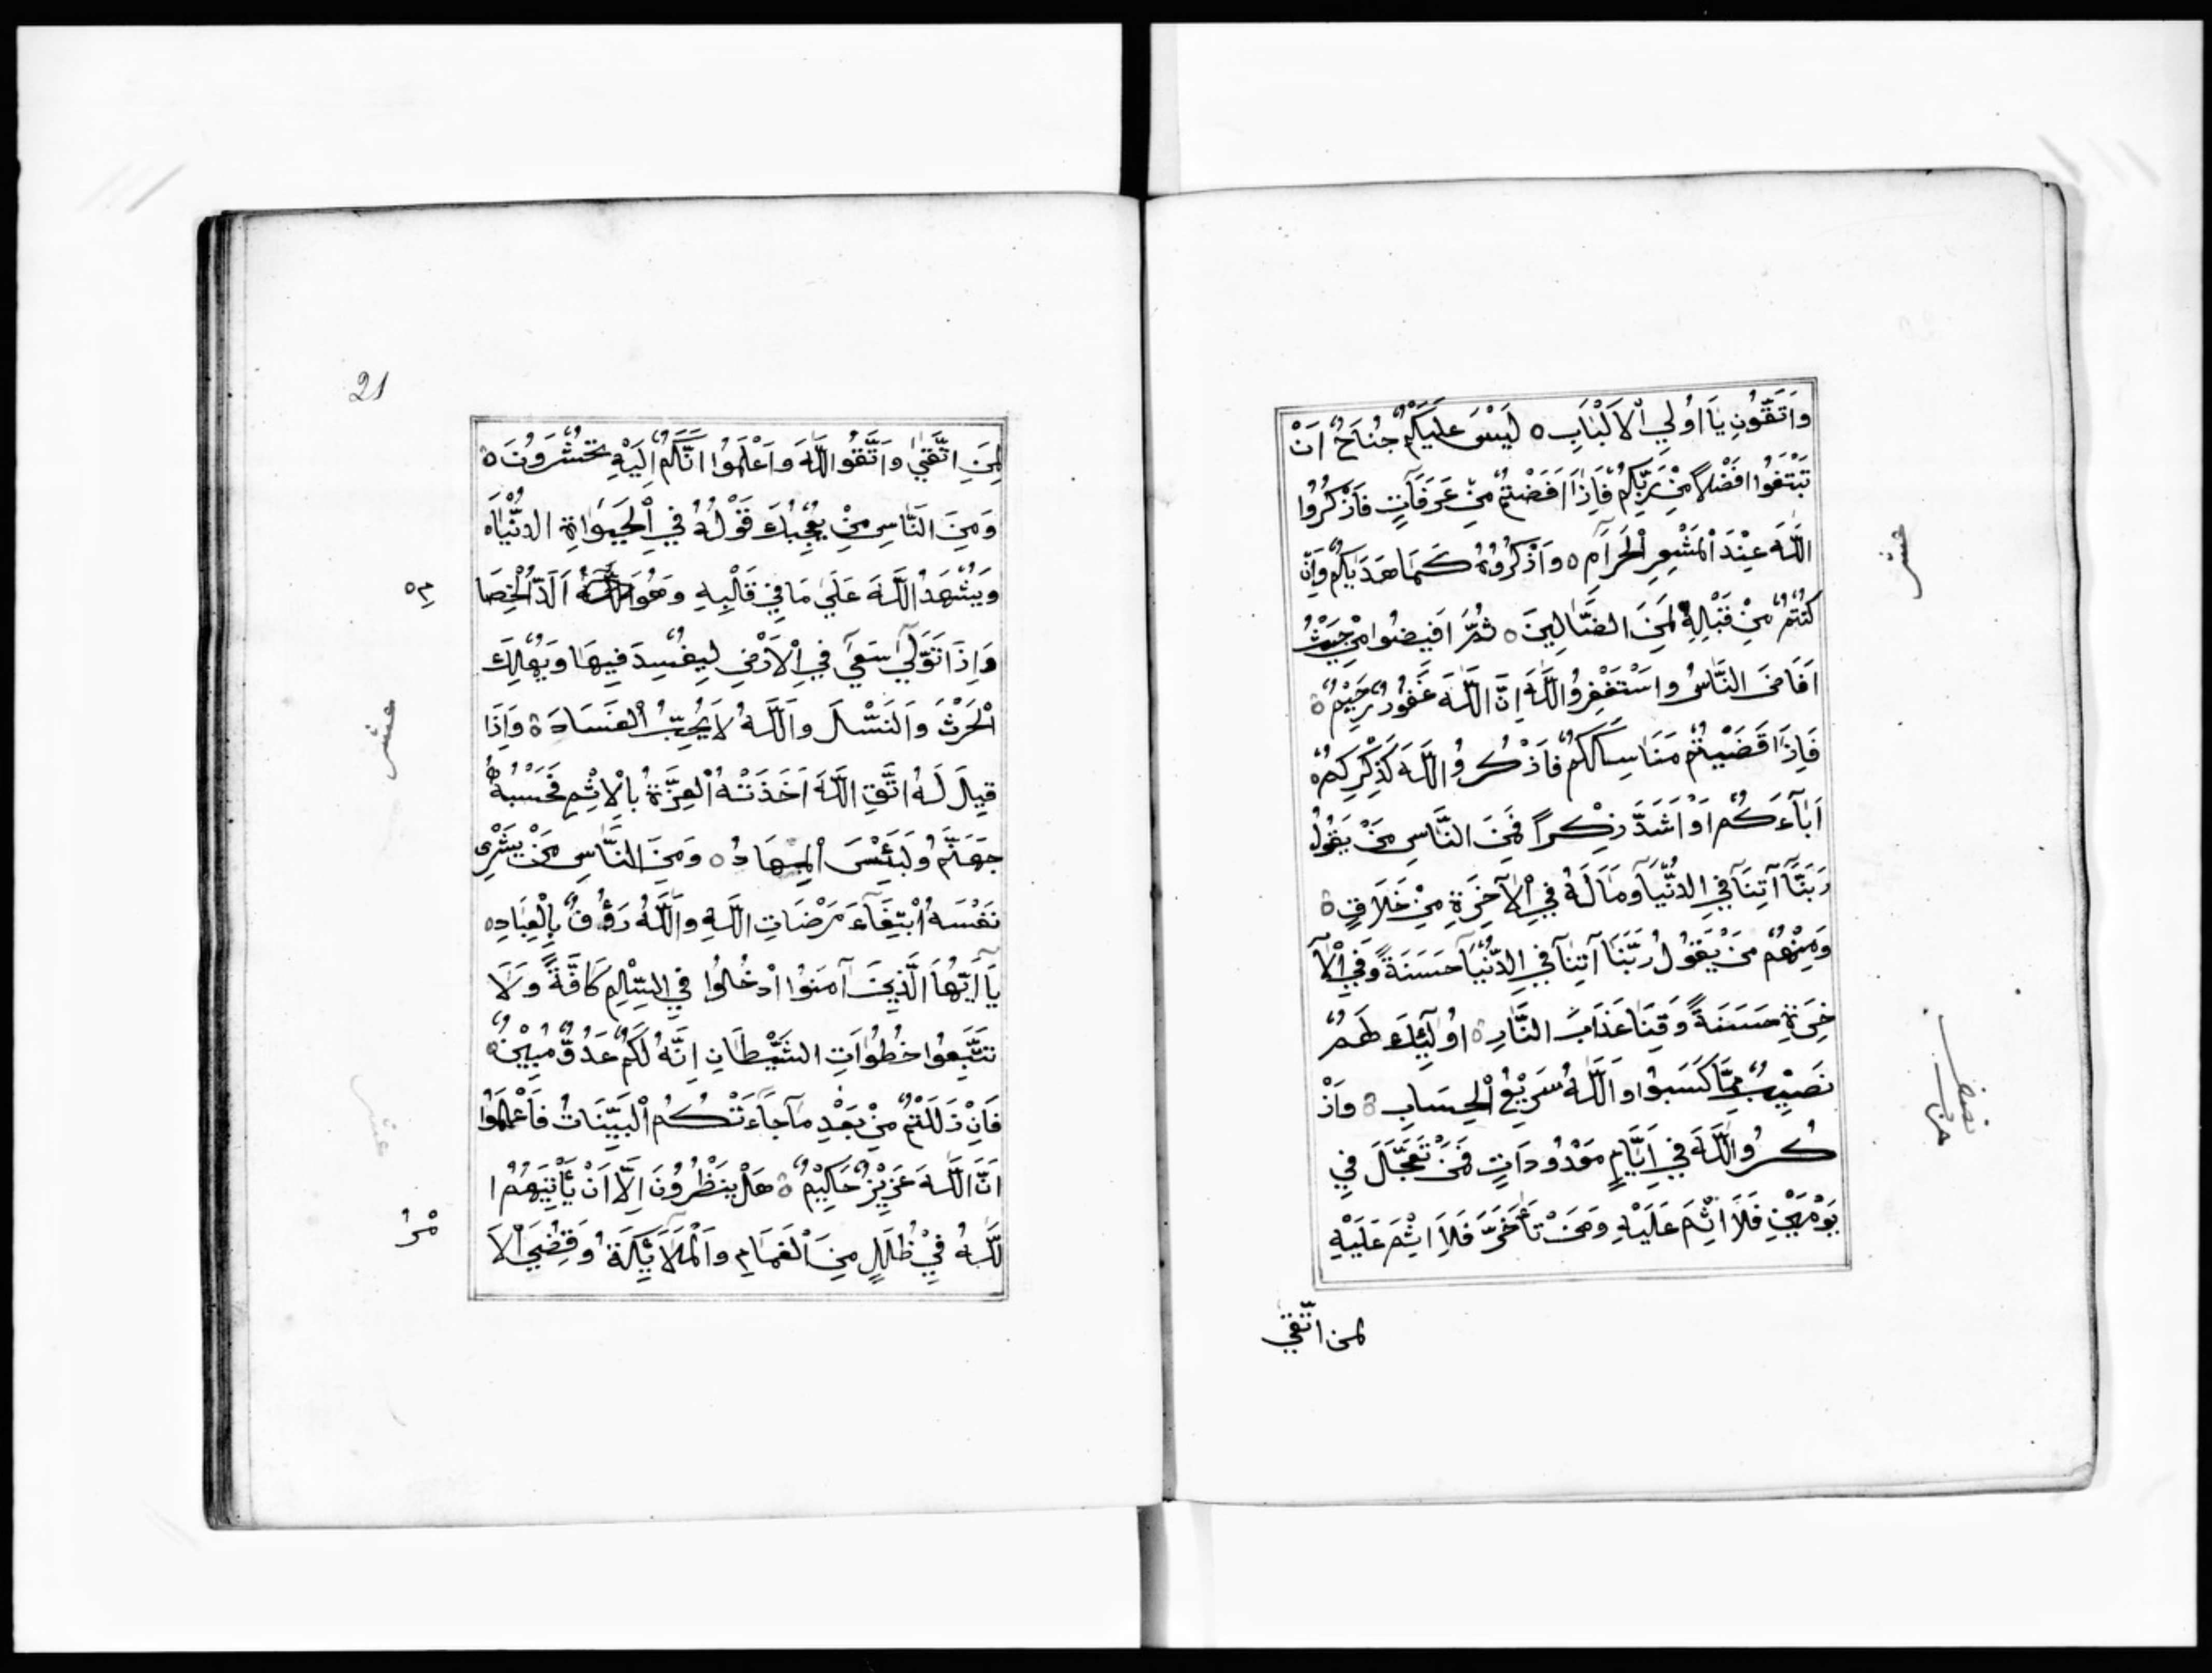 وَاتَّقُونِ يَا اُولِي الْاَلْبَابِ ٥ لَيْسَ عَلَيْكُمْ جُنَاحٌ اَنْ
تَبْتَغُوا فَضْلًا مِنْ رَبِّكُمْ فَاِذَا اَفَضْتُمْ مِنْ عَرَفَاتٍ فَاذْكُرُوا
اللّٰهَ عِنْدَ الْمَشْعَرِ الْحَرَامِ ٥ وَاذْكُرُوهُ كَمَا هَدَيٰكُمْ وَاِنْ
كُنْتُمْ مِنْ قَبْلِهِ لَمِنَ الضَّالِينَ ٥ ثُمَّ اَفِيضُوا مِنْ حَيْثُ
اَفَاضَ النَّاسُ وَاسْتَغْفِرُوا اللّٰهَ اِنَّ اللّٰهَ غَفُورٌ رَحِيمٌ ٥
فَاِذَا قَضَيْتُمْ مَنَاسِكَكُمْ فَاذْكُرُوا اللّٰهَ كَذِكْرِكُمْ
اٰبَآءَكُمْ اَوْ اَشَدَّ ذِكْرًا فَمِنَ النَّاسِ مَنْ يَقُولُ
رَبَّنَآ آتِنَا فِي الدُّنْيَا وَمَا لَهُ فِي الْآخِرَةِ مِنْ خَلَاقٍ ٥
وَمِنْهُمْ مَنْ يَقُولُ رَبَّنَا آتِنَا فِي الدُّنْيَا حَسَنَةً وَفِي الْآ
خِرَةِ حَسَنَةً وَقِنَا عَذَابَ النَّارِ ٥ اُولٰٓئِكَ لَهُمْ
نَصِيبٌ مِمَّا كَسَبُوا وَاللّٰهُ سَرِيعُ الْحِسَابِ ٥ وَاذْ
كُرُوا اللّٰهَ فِي اَيَّامٍ مَعْدُودَاتٍ فَمَنْ تَعَجَّلَ فِي
يَوْمَيْنِ فَلَا اِثْمَ عَلَيْهِ وَمَنْ تَاَخَّرَ فَلَا اِثْمَ عَلَيْهِ
لمن اتّقي
عشر
نصف
حزب
21
لِمَنِ اتَّقَيٰ وَاتَّقُوا اللّٰهَ وَاعْلَمُوا اَنَّكُمْ اِلَيْهِ تُحْشَرُونَ ٥
وَمِنَ النَّاسِ مَنْ يُعْجِبُكَ قَوْلُهُ فِي الْحَيٰوةِ الدُّنْيَا
وَيُشْهِدُ اللّٰهَ عَلَيٰ مَا فِي قَلْبِهِ وَهُوَ اَلَدُّ الْخِصَا
مِ ٥
وَاِذَا تَوَلَّيٰ سَعَيٰ فِي الْاَرْضِ لِيُفْسِدَ فِيهَا وَيُهْلِكَ
الْحَرْثَ وَالنَّسْلَ وَاللّٰهُ لَا يُحِبُّ الْفَسَادَ ٥ وَاِذَا
قِيلَ لَهُ اتَّقِ اللّٰهَ اَخَذَتْهُ الْعِزَّةُ بِالْاِثْمِ فَحَسْبُهُ
جَهَنَّمُ وَلَبِئْسَ الْمِهَادُ ٥ وَمِنَ النَّاسِ مَنْ يَشْرِي
نَفْسَهُ ابْتِغَآءَ مَرْضَاتِ اللّٰهِ وَاللّٰهُ رَؤُفٌ بِالْعِبَادِ ٥
يَآ اَيُّهَا الَّذِينَ آمَنُوا ادْخُلُوا فِي السِّلْمِ كَافَّةً وَلَا
تَتَّبِعُوا خُطُوَاتِ الشَّيْطَانِ اِنَّهُ لَكُمْ عَدُوٌّ مُبِينٌ ٥
فَاِنْ زَلَلْتُمْ مِنْ بَعْدِ مَا جَآءَتْكُمُ الْبَيِّنَاتُ فَاعْلَمُوا
اَنَّ اللّٰهَ عَزِيزٌ حَكِيمٌ ٥ هَلْ يَنْظُرُونَ اِلَّا اَنْ يَأْتِيَهُمُ ا
للّٰهُ فِي ظُلَلٍ مِنَ الْغَمَامِ وَالْمَلَآئِكَةُ وَقُضِيَ الْاَ
مْرُ
عشر